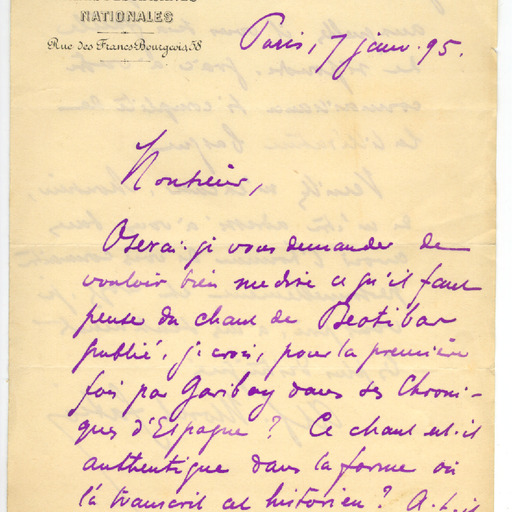 NATIONALES
Rue des Francs-Bourgeois, 58
Paris, 7 janv. 95.
Monsieur,
Oserai-je vous demander de
vouloir bien me dire ce qu'il faut
penser du chant de Beotibar
publié, je crois, pour la première
fois par Garibay dans ses Chroni-
ques d'Espagne ? Ce chant est-il
authentique dans la forme où
l'a transcrit cet historien ? A-t-il